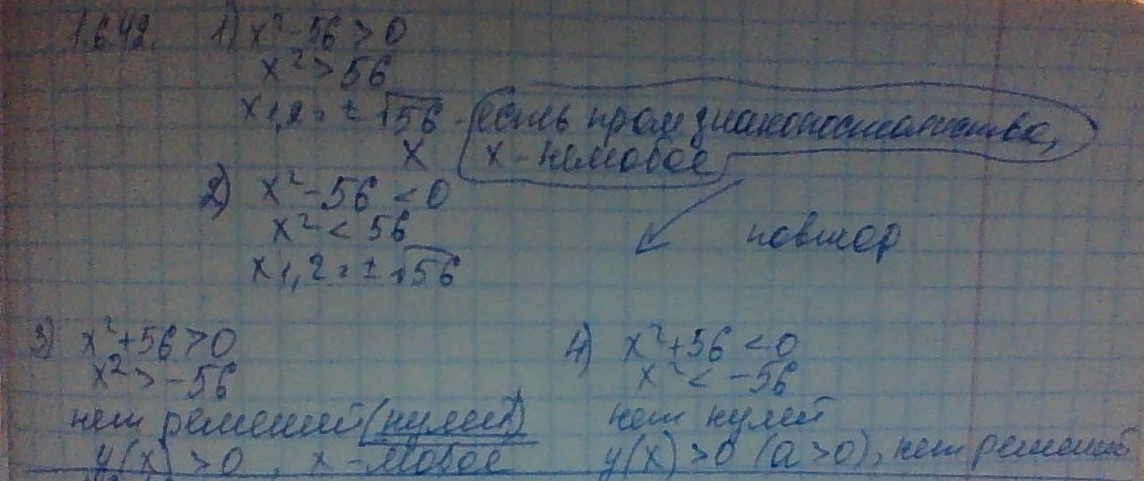 1.642. 1) x²-56>0
x²>56
x1,2=±√56 есть пром знакопостоянства,
x x - нелюбое
2) x²-56<0
x²<56
x1,2=±√56
повтор
3) x²+56>0
x²>-56
нет решений (нулей)
y(x)>0, x - любое
4) x²+56<0
x²<-56
нет нулей
y(x)>0 (a>0), нет решений